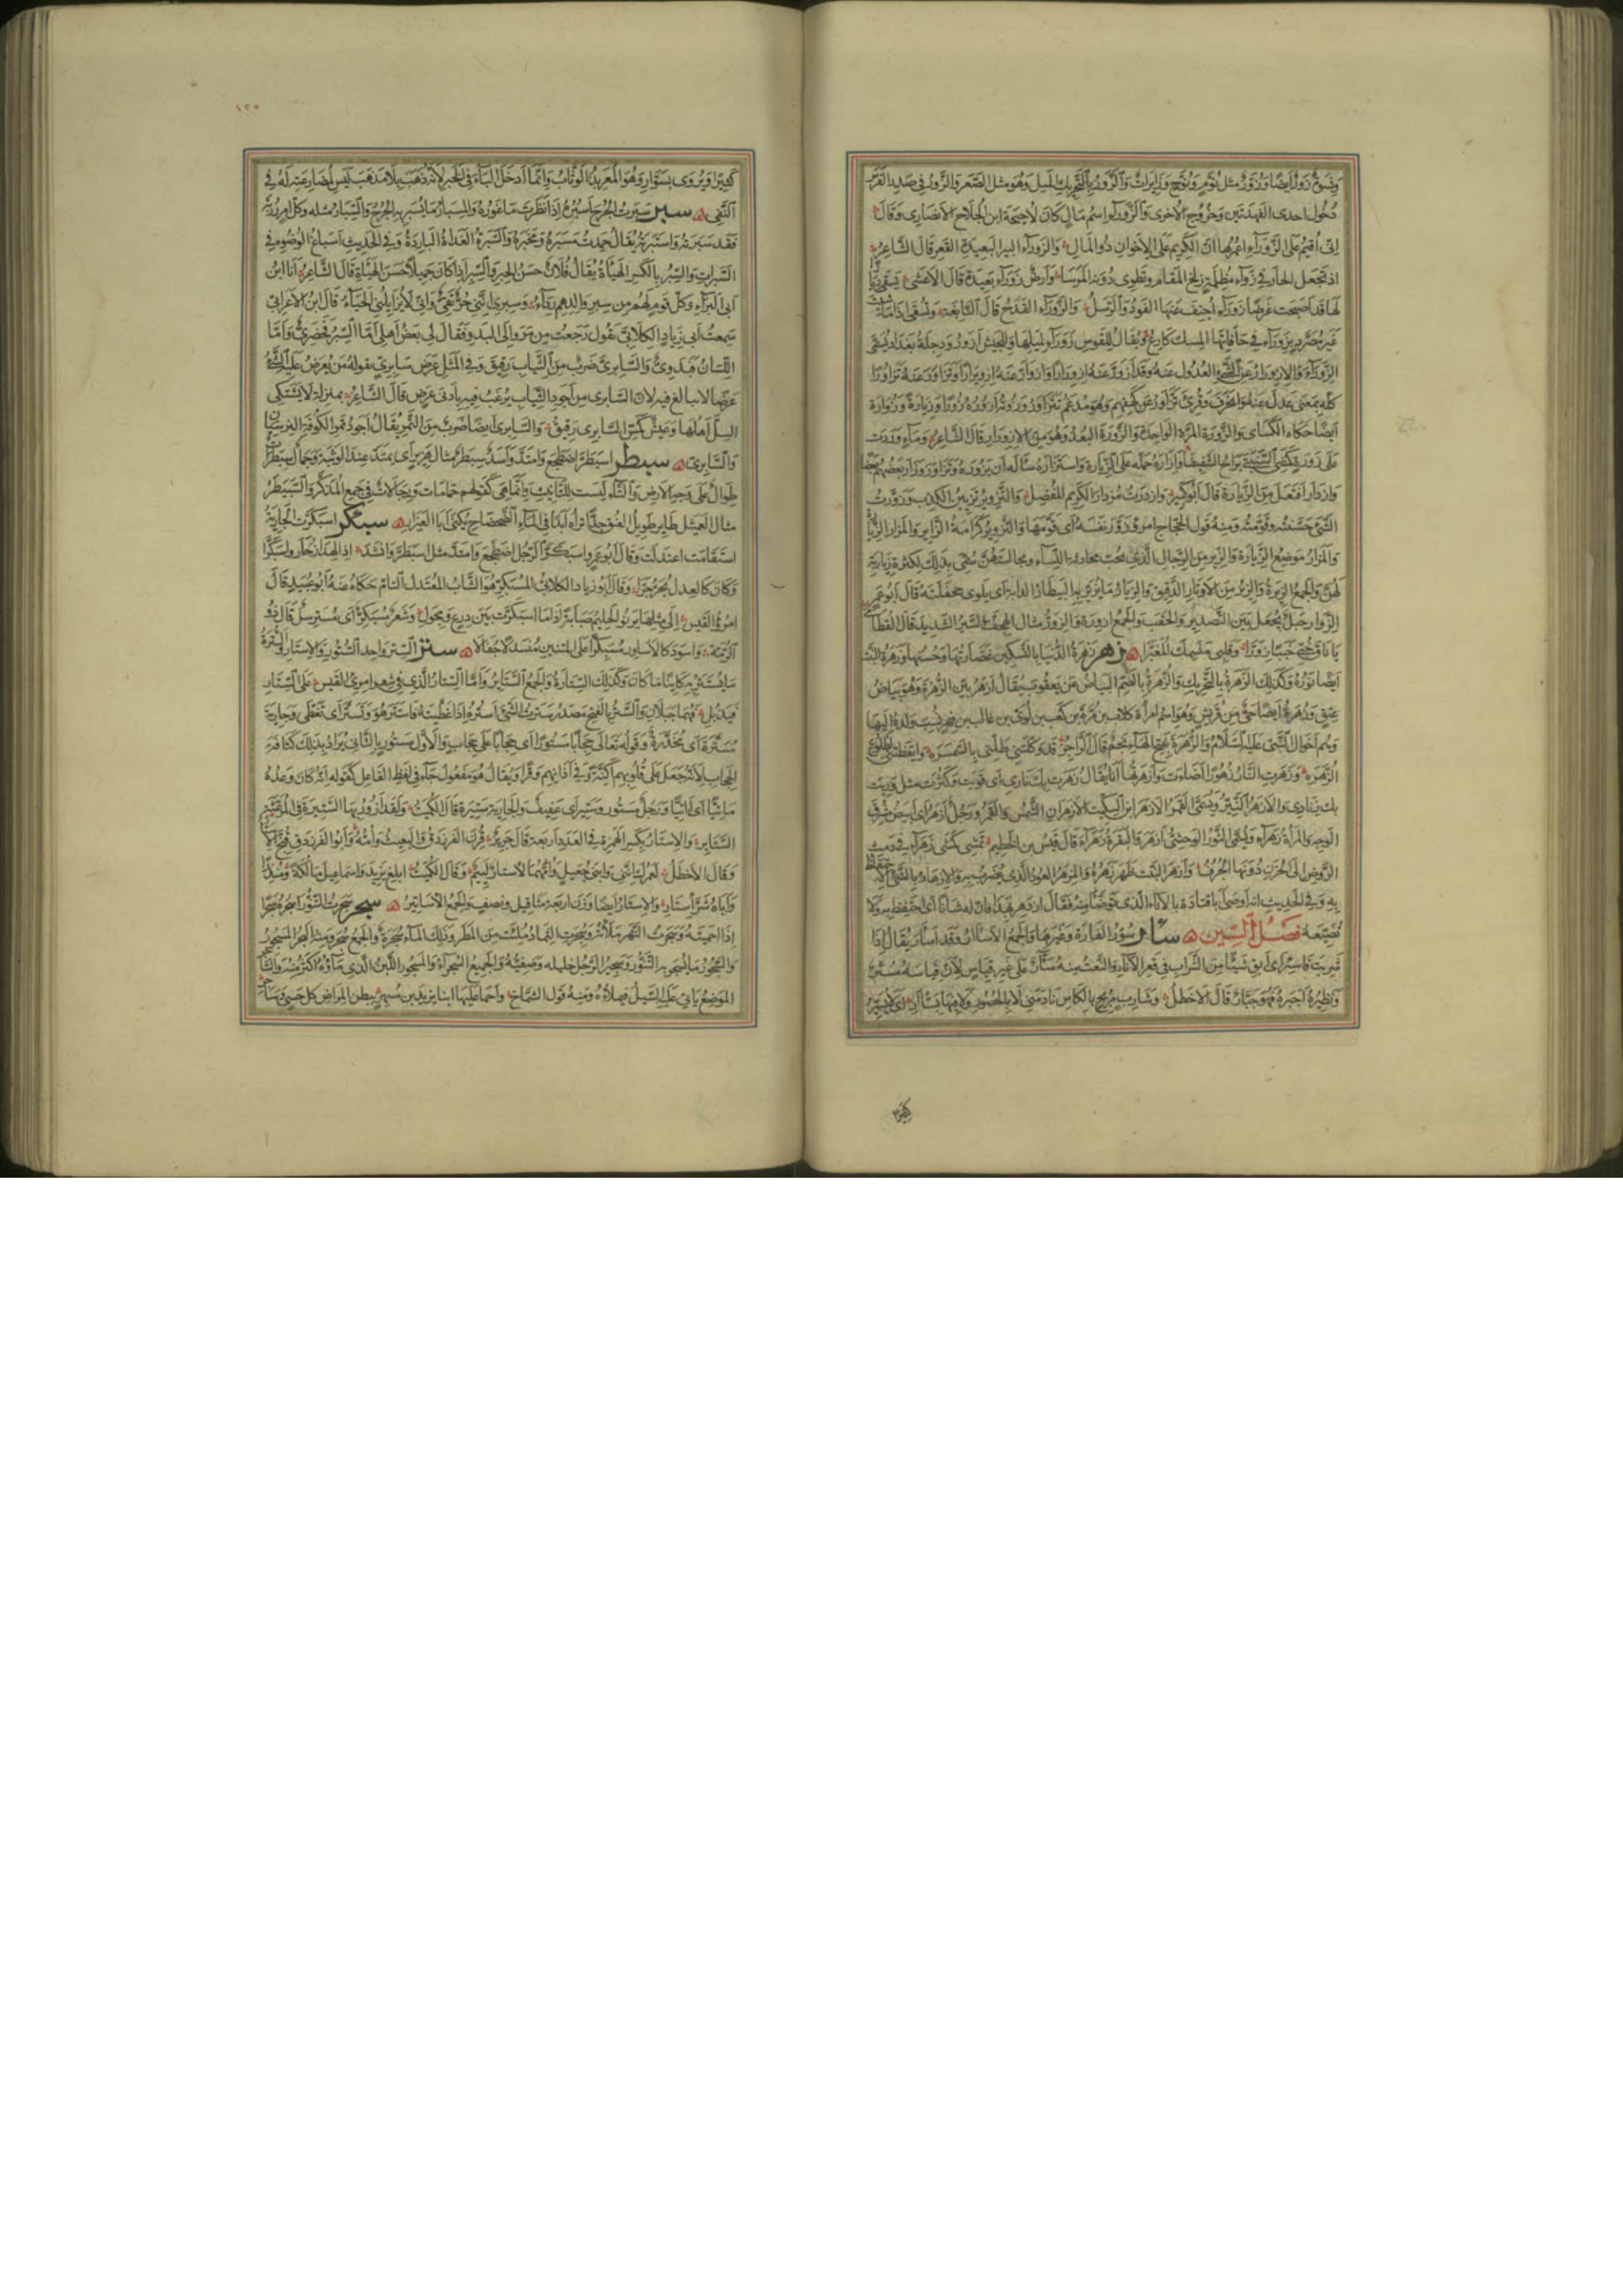 ونسوة زور أيضا وزور مثل نوم ونوح وزايرات والزور بالتحريك الميل وهو مثل الصعر والزور في صدر الفرس
دخول احدى الفهدتين وخروج الاخرى والزوراء اسم مال كان لاحيحة ابن الجلاح الانصاري وقال
اني أقيم على الزوراء اعمرها ان الكريم على الاخوان ذو المال والزوراء البير البعيدة القعر قال الشاعر
اذ تجعل الجار في زوراء مظلمة زلخ المقام وتطوي دونه المرسا وأرض زوراء بعيدة قال الاعشى يسقي ديارا
لها قد اصبحت غرضا زوراء أجنف عنها القود والرسل والزوراء القدح قال النابغة وتسقى اذا ما شئت
غير مصرد بزوراء في حافاتها المسك كارع ويقال للقوس زوراء لميلها وللجيش أزور ودجلة بغداد تسمى
الزوراء والازورار عن الشيء العدول عنه وقد أزور عنه ازورارا وازوار عنه ازويرارا وتزاور عنه تزاورا
كله بمعنى عدل عنه وانحرف وقرئ تزاور عن كهفهم وهو مدغم تتزاور وزرته أزوره زورا وزيارة وزوارة
أيضا حكاه الكساي والزورة المرة الواحدة والزورة البعد وهو من الازورار قال الشاعر وماء وردت
على زورة كمشي السبنتى يراح الشفيفا وازاره حمله على الزيارة واستزاره سأله أن يزوره وتزاوروا زار بعضهم بعضا
وازدار افتعل من الزيارة قال أبو كبير وازدرت مزدار الكريم المفضل والتزوير تزيين الكذب وزورت
الشيء حسنته وقومته ومنه قول الحجاج امرؤ زور نفسه أي قومها والتزوير كرامة الزاير والمزار الزيارة
والمزار موضع الزيارة والزير من الرجال الذي يحب محادثة النساء ومجالستهن سمي بذلك لكثرة زيارته
لهن والجمع الزيرة والزير من الاوتار الدقيق والزيار ما يزير به البيطار الدابة أي يلوي جحفلته قال أبو عمرو
الزوار حبل يجعل بين التصدير والحقب والجمع أزورة والزور مثال الهجف السير الشديد قال القطامي
يا ناق خبي خببا زورا وقلبي منسمك المغبرا زهر زهرة الدنيا بالتسكين غضارتها وحسنها وزهرة النبت
أيضا نوره وكذلك الزهرة بالتحريك والزهرة بالضم البياض عن يعقوب يقال أزهر بين الزهرة وهو بياض
عتق وزهرة أيضا حي من قريش وهو اسم امرأة كلاب بن مرة بن كعب بن لؤي بن غالب بن فهر نسب ولده اليها
وهم اخوال النبي عليه السلام والزهرة بفتح الهاء نجم قال الراجز قد وكلتني طلتي بالسمسرة وايقظتني لطلوع
الزهرة وزهرت النار زهورا اضاءت وأزهرتها أنا يقال زهرت بك ناري أي قويت وكثرت مثل وريت
بك زنادي والازهر النير ويسمى القمر الازهر ابن السكيت الازهران الشمس والقمر ورجل أزهر أي أبيض مشرق
الوجه والمرأة زهراء ويسمى الثور الوحشي أزهر والبقرة زهراء قال قيس بن الخطيم تمشي كمشي زهراء في دمث
الروض الى الحزن دونها الجرف وأزهر النبت ظهر زهره والمزهر العود الذي يضرب به والازدهار بالشيء الاحتفاظ
به وفي الحديث انه أوصى أبا قتادة بالاناء الذي توضأ منه فقال ازدهر بهذا فان له شأنا أي احتفظ به ولا
تضيعه فصل السين سار سؤر الفارة وغيرها والجمع الاسآر وقد أسأر يقال اذا
شربت فاسئر أي أبق شيئا من الشراب في قعر الاناء والنعت منه سئار على غير قياس لان قياسه مسئر
ونظيره أجبره فهو جبار قال الاخطل وشارب مربح بالكاس نادمني لا بالحصور ولا فيها بسئار أي لا يسئر
كثيرا
١٢٥
كثيرا ويروى بسوار وهو المعربد الوثاب وانما أدخل الباء في الخبر لانه ذهب بلا مذهب ليس لمضارعته له في
النفي سبر سبرت الجرح أسبره اذا نظرت ما غوره والمسبار ما يسبر به الجرح والسبار مثله وكل امر رزته
فقد سبرته واستبرته يقال حمدت مسبره ومخبره والسبرة الغداة الباردة وفي الحديث اسباغ الوضوء في
السبرات والسبر بالكسر الهيئة يقال فلان حسن الحبر والسبر اذا كان جميلا حسن الهيئة قال الشاعر أنا ابن
أبي البراء وكل قوم لهم من سبر والدهم رداء وسبري انني حر تقي واني لا يزايلني الحياء قال ابن الاعرابي
سمعت أبي زياد الكلابي يقول رجعت من مرو الى البدو فقال لي بعض أهلي أما السبر فحضري وأما
اللسان فبدوي والسابري ضرب من الثياب رقيق وفي المثل عرض سابري يقوله من يعرض عليه الشيء
عرضا لا يبالغ فيه لان السابري من أجود الثياب يرغب فيه بأدنى عرض قال الشاعر بمنزلة لا يشتكي
السل أهلها وعيش كمس السابري رقيق والسابري أيضا ضرب من التمر يقال أجود تمر الكوفة النرسيان
والسابري سبطر اسبطر اضطجع وامتد وأسد سبطر مثال هزبر أي يمتد عند الوثبة وجمال سبطرات
طوال على وجه الارض والتاء ليست للتأنيث وانما هي كقولهم حمامات ورجالات في جمع المذكر والسبيطر
مثال العميثل طاير طويل العنق جدا تراه أبدا في الماء الضحضاح يكنى أبا العيزار سبكر اسبكرت الجارية
استقامت اعتدلت وقال أبو عمرو اسبكر الرجل اضطجع وامتد مثل اسبطر وانشد اذا الهدان حار واسبكرا
وكان كالعدل يجر جرا وقال أبو زياد الكلابي المسبكر هو الشاب المعتدل التام حكاه عنه أبو عبيد قال
امرؤ القيس الى مثلها يرنو الحليم صبابة اذا ما اسبكرت بين درع ومجول وشعر مسبكر أي مسترسل قال ذو
الرمة واسود كالاساود مسبكرا على المتنين منسدلا جفالا ستر الستر واحد الستور والاستار والسترة
ما يستتر به كاينا ما كان وكذلك الستارة والجمع الستاير وأما الستار الذي في شعر امرئ القيس على الستار
فيذبل فهما جبلان والستر بالفتح مصدر سترت الشيء أستره اذا غطيته فاستتر هو وتستر أي تغطى وجارية
مسترة أي مخدرة وقوله تعالى حجابا مستورا أي حجابا على حجاب والاول مستور بالثاني يراد بذلك كثافة
الحجاب لانه جعل على قلوبهم أكنة وفي آذانهم وقرا ويقال هو مفعول جاء في لفظ الفاعل كقوله انه كان وعده
مأتيا أي آتيا ورجل مستور وستير أي عفيف والجارية ستيرة قال الكميت ولقد أزور بها الستيرة في المرعثة
الستاير والاستار بكسر الهمزة في العدد أربعة قال جرير قرن الفرزدق والبعيث وأمه وأبو الفرزدق قبح الاستار
وقال الاخطل لعمرك انني وابني جعيل وأمهما لاستار لئيم وقال الكميت أبلغ يزيد واسماعيل مالكة ومنذرا
وأباه شر أستار والاستار أيضا وزن أربعة مثاقيل ونصف والجمع الاساتير سجر سجرت التنور أسجره سجرا
اذا احميته وسجرت النهر ملأته وسجرت الثماد ملئت من المطر وذلك الماء سجرة والجمع سجر ومنه البحر المسجور
والسجور ما يسجر به التنور وسجير الرجل خليله وصفيه والجميع السجراء والمسجور اللبن الذي ماؤه أكثر منه والساجر
الموضع يأتي عليه السيل فيملاءه ومنه قول الشماخ وأحمى عليها ابنا يزيد بن مسهر ببطن المراض كل حسي وساجر